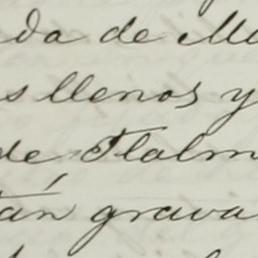 da de M
s llenos y
de Tlalm
tán grava